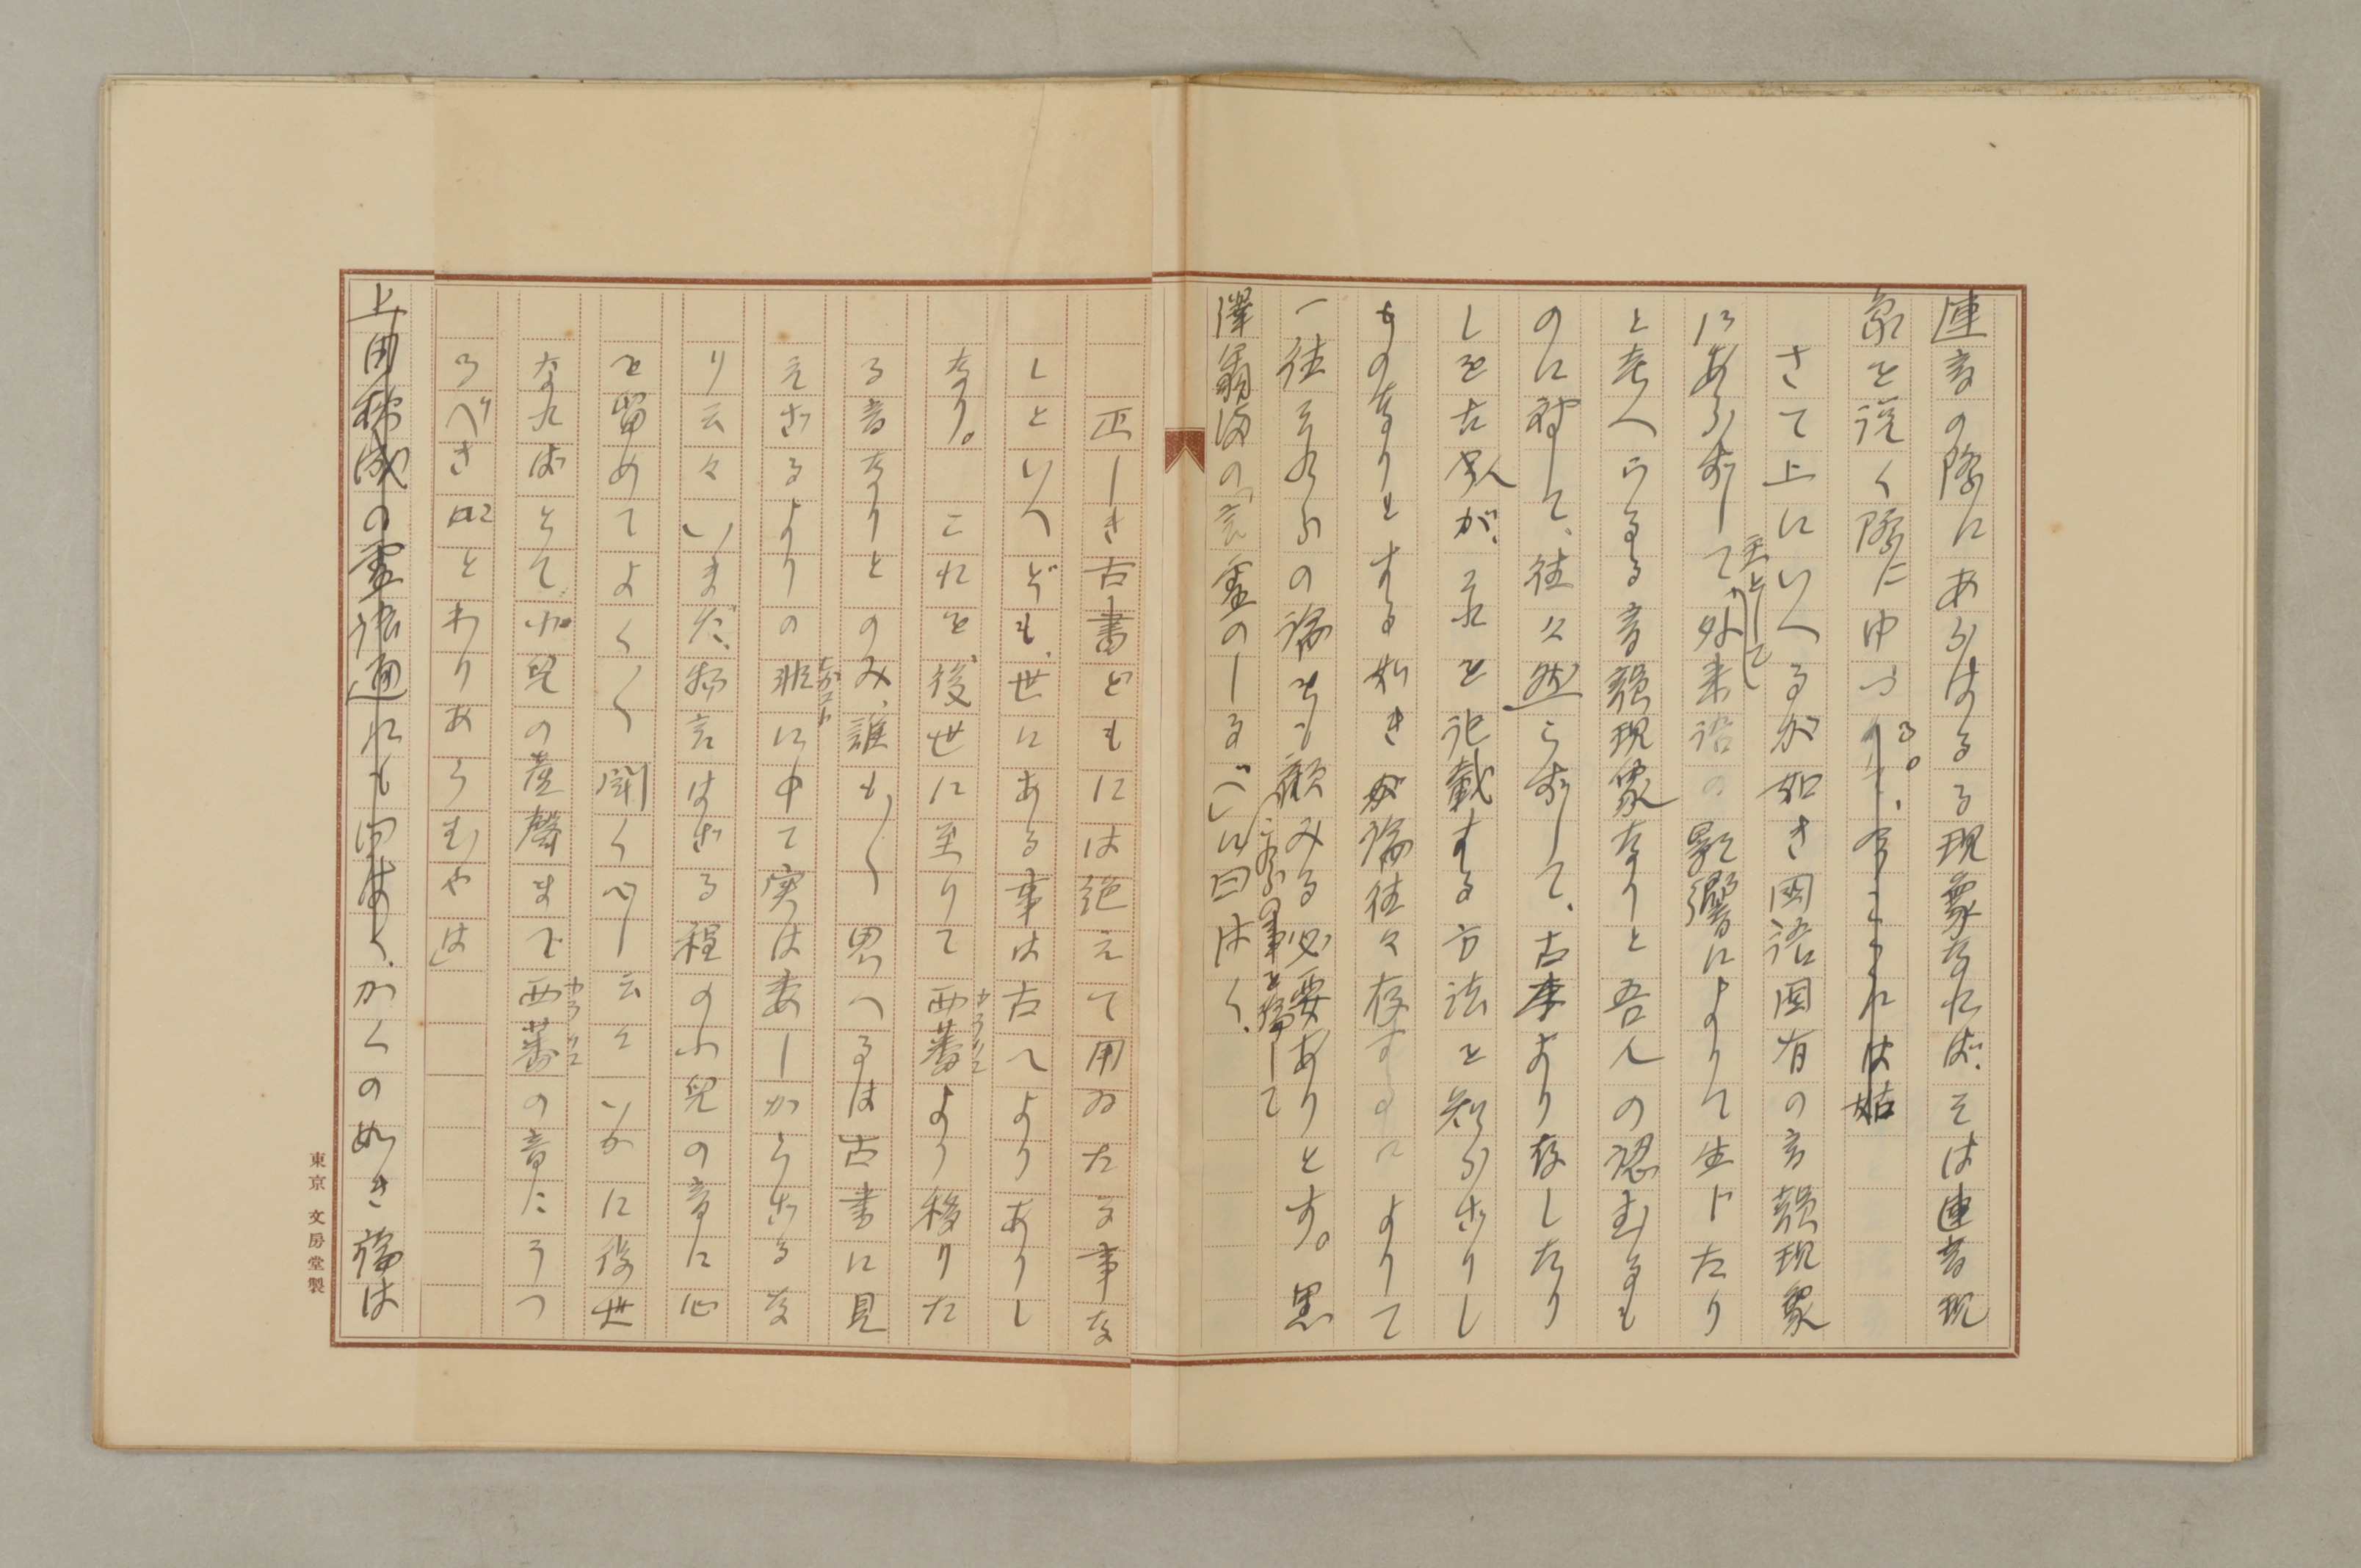 連音の際にあらはるる現象なれば、そは連音現
象を説く際にゆづる。
さて上にいへるが如き國語固有の音韻現象
にあらずして、主として外来語の影響によりて生じたり
と考へらるる音韻現象なりと吾人の認むるも
のに対して、往々然らずして、古来より存したり
しを古人が、それを記載する方法を知らざりし
ものなりとする如き論往々存するによりて
一往それらの論をも顧みる必要ありとす。黒
澤翁満の言霊のしるべにこれらの事を論じて曰はく、
正しき古書どもには絶えて用ゐたる事な
しといへども、世にある事は古へよりありし
なり。これを、後世に至りて西蕃よりり移りた
る音なりとのみ、誰も〳〵思へるは古書に見
えざるよりの非に中て実は委しからざるな
り云々いまだ、物言はざる程の小児の音に心
を留めてよく〳〵聞くべし云々いかに後世
なればとて、小児の産聲まで西蕃の音にうつ
るべきことわりあらむやは」
上田秋成の霊語通にも曰はく、かくの如き論は
東京 文房堂製